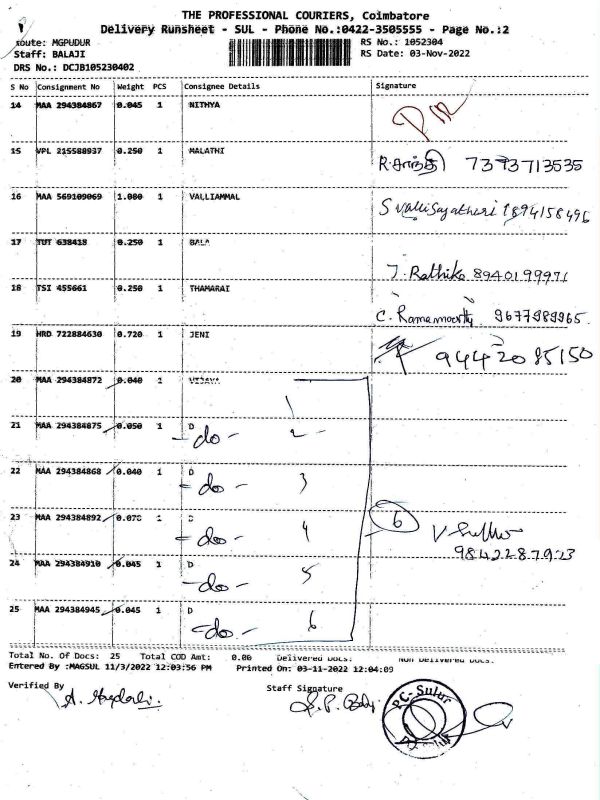 THE PROFESSIONAL COURIERS, Coimbatore
Delivery Runsheet - SUL - Phone No.:0422-3505555 - Page No.:2
Route: MGPUDUR RS No.: 1052304
Staff: BALAJI RS Date: 03-Nov-2022
DRS No.: DCJB105230402
S No Consignment No Weight PCS Consignee Details Signature
14 MAA 294384867 0.045 1 NITHYA
15 VPL 215588937 0.250 1 MALATHI
R.சாந்தி 7373713535
16 MAA 569109069 1.080 1 VALLIAMMAL
17 TUT 638418 0.250 1 BALA
J. Rathika 8940199971
18 TSI 455661 0.250 1 THAMARAI
C. Ramamoorthy 9677989965
19 HRD 722884630 0.720 1 JENI
9442085150
20 MAA 294384872 0.040 1 VIJAYA
1
21 MAA 294384875 0.050 1 D
-do- 2
22 MAA 294384868 0.040 1 D
-do- 3
23 MAA 294384892 0.070 1 D
-do- 4 6
9842287923
24 MAA 294384910 0.045 1 D
-do- 5
25 MAA 294384945 0.045 1 D
-do- 6
Total No. Of Docs: 25 Total COD Amt: 0.00 Delivered Docs: Non Delivered Docs:
Entered By :MAGSUL 11/3/2022 12:03:56 PM Printed On: 03-11-2022 12:04:09
Verified By Staff Signature
PC-Sulur